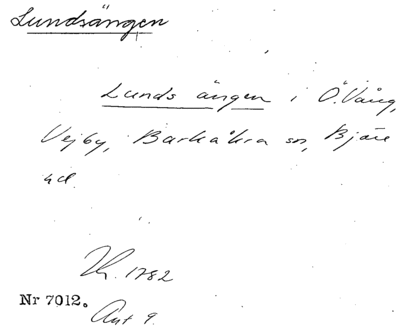 Lundsängen
Lunds ängen i Ö. Vång,
Vejby, Barkåkra sn, Bjäre
hd.
1782
Nr 7012.
Akt 9.